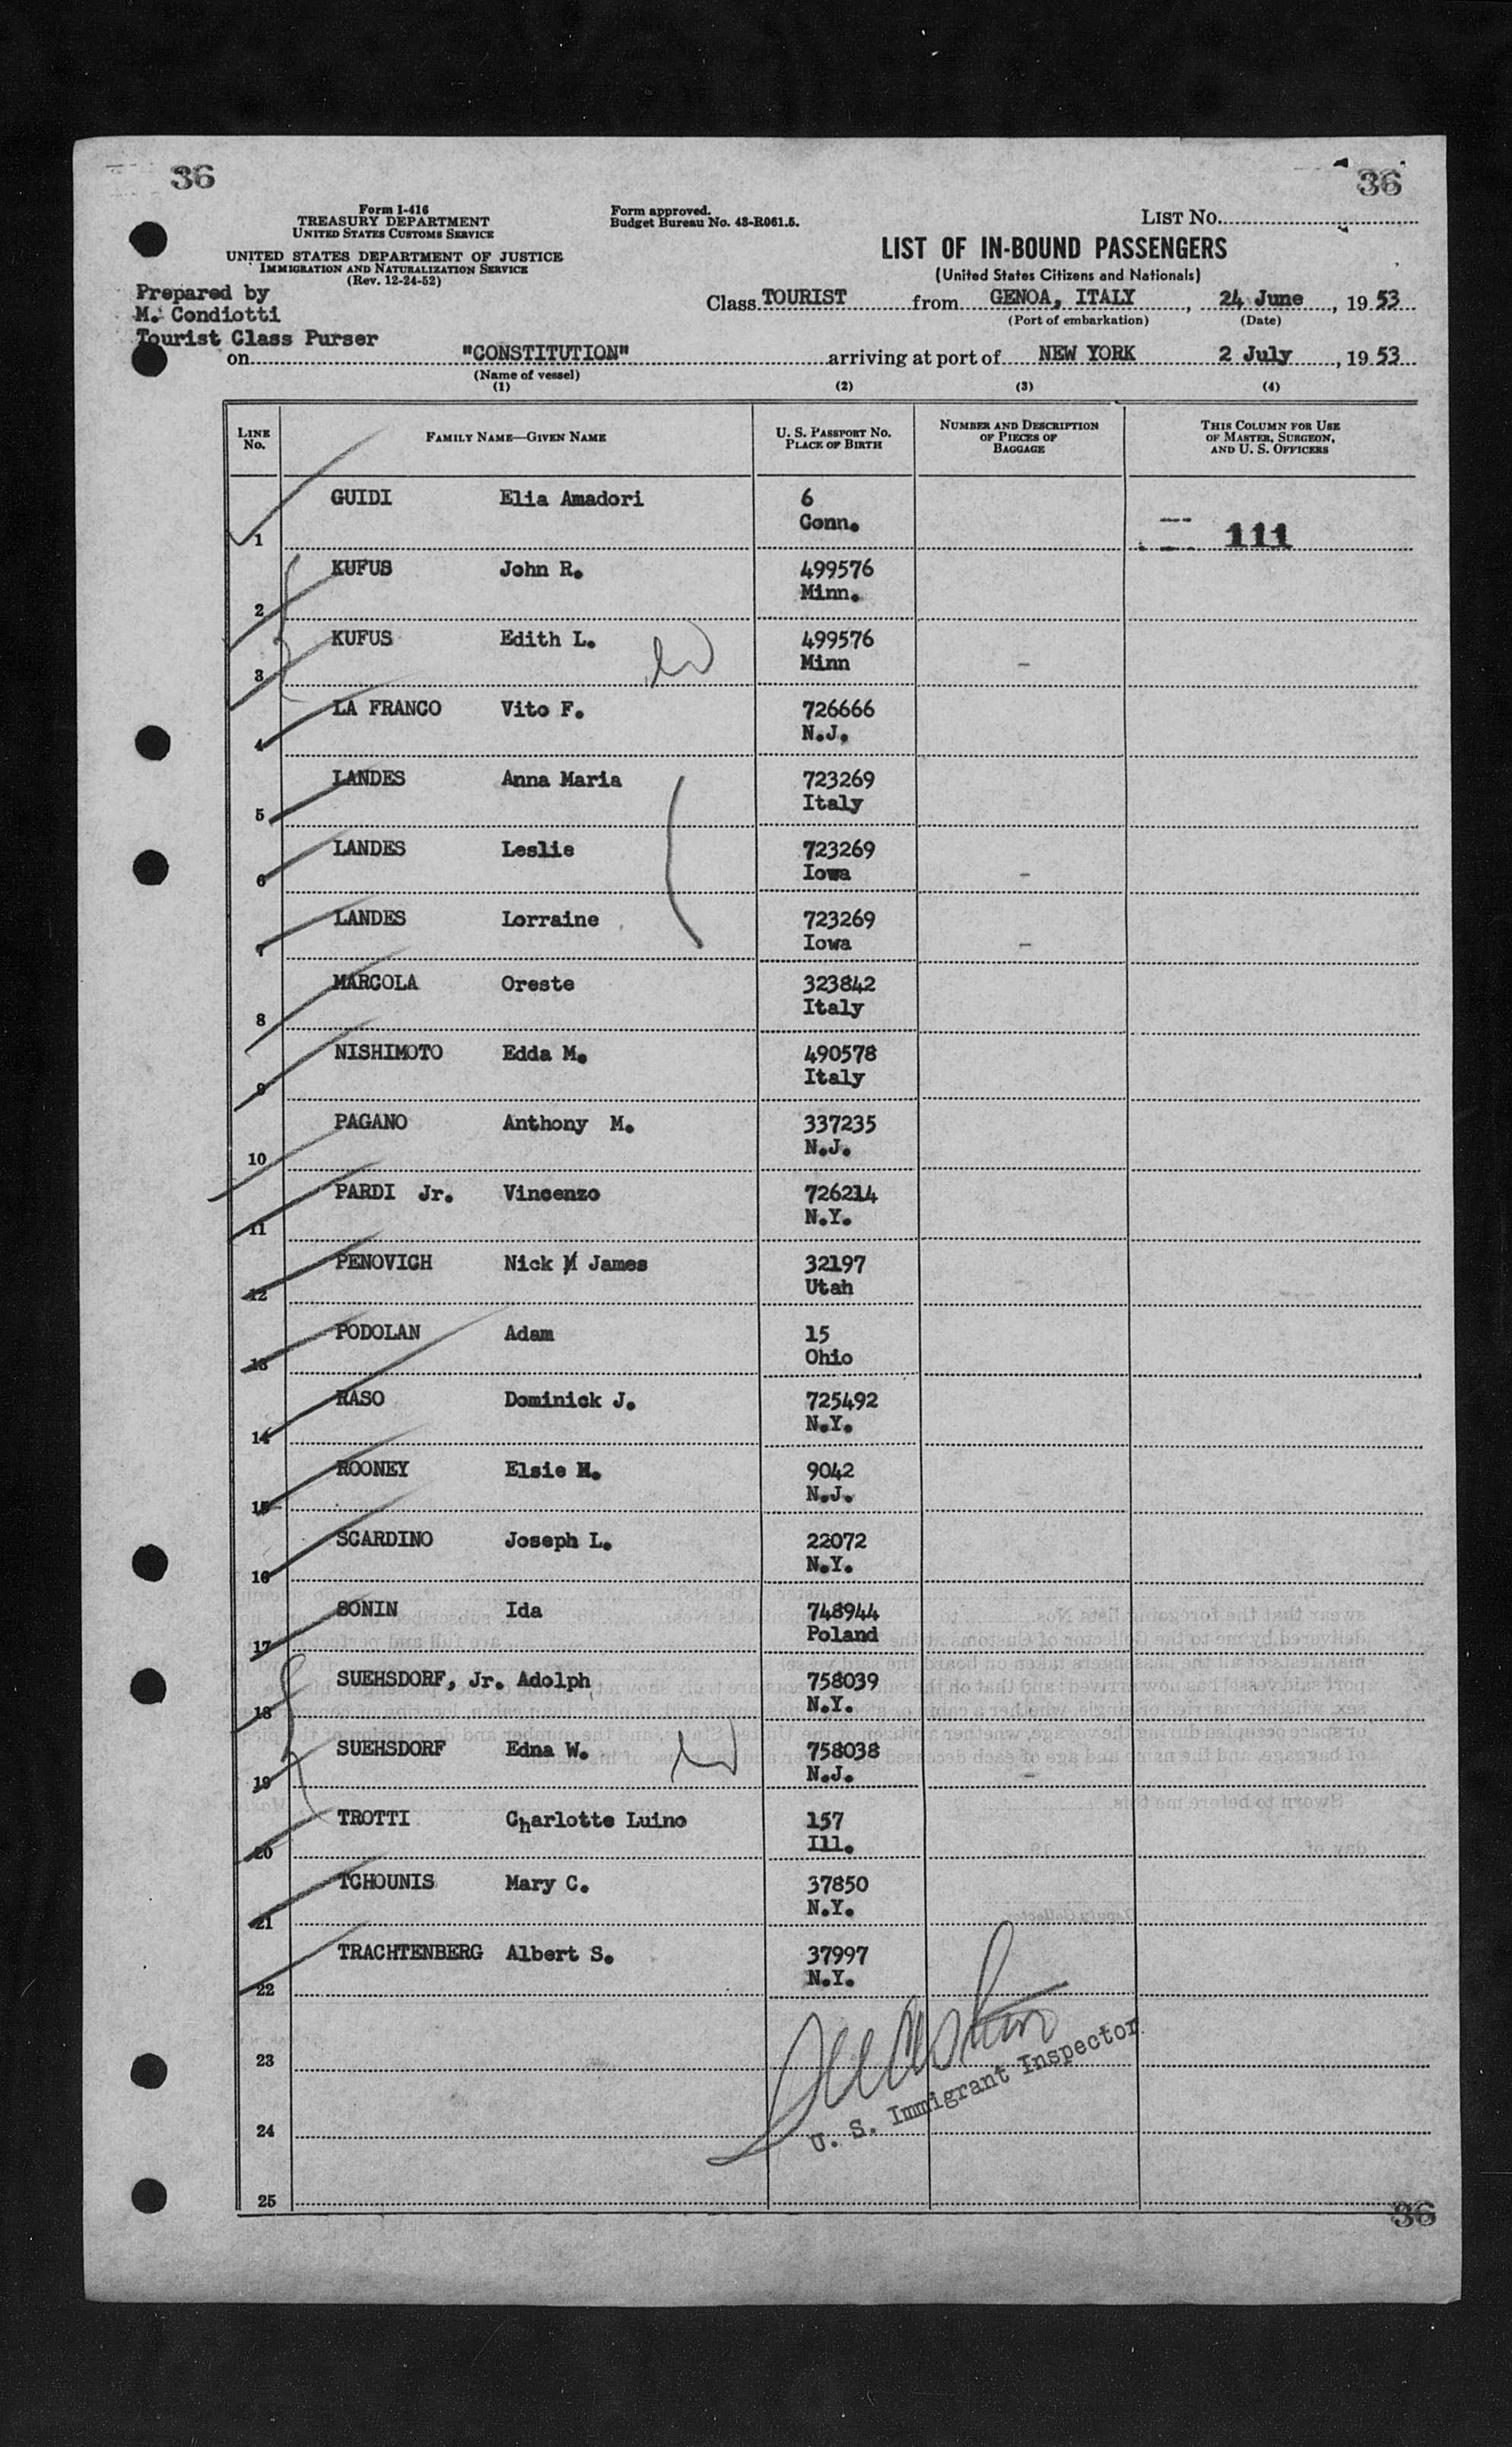 36
36
Form I-416
TREASURY DEPARTMENT
UNITED STATES CUSTOMS SERVICE
Form approved.
Budget Bureau No. 43-R061.5.
LIST NO.
UNITED STATES DEPARTMENT OF JUSTICE
IMMIGRATION AND NATURALIZATION SERVICE
(Rev. 12-24-52)
LIST OF IN-BOUND PASSENGERS
(United States Citizens and Nationals)
Prepared by
M. Condiotti
Tourist Class Purser
Class TOURIST from GENOA, ITALY, 24 June, 19 53
(Port of embarkation) (Date)
on "CONSTITUTION" arriving at port of NEW YORK 2 July, 19 53
(Name of vessel)
(1) (2) (3) (4)
LINE No. FAMILY NAME—GIVEN NAME U. S. PASSPORT NO. PLACE OF BIRTH NUMBER AND DESCRIPTION OF PIECES OF BAGGAGE THIS COLUMN FOR USE OF MASTER, SURGEON, AND U. S. OFFICERS
GUIDI Elia Amadori 6
1 Conn. 111
KUFUS John R. 499576
2 Minn.
KUFUS Edith L. 499576
3 Minn -
LA FRANCO Vito F. 726666
4 N.J.
LANDES Anna Maria 723269
5 Italy
LANDES Leslie 723269
6 Iowa -
LANDES Lorraine 723269
7 Iowa -
MARCOLA Oreste 323842
8 Italy
NISHIMOTO Edda M. 490578
9 Italy
PAGANO Anthony M. 337235
10 N.J.
PARDI Jr. Vincenzo 726214
11 N.Y.
PENOVICH Nick M James 32197
12 Utah
PODOLAN Adam 15
13 Ohio
RASO Dominick J. 725492
14 N.Y.
ROONEY Elsie H. 9042
15 N.J.
SCARDINO Joseph L. 22072
16 N.Y.
SONIN Ida 748944
17 Poland
SUEHSDORF, Jr. Adolph 758039
18 N.Y.
SUEHSDORF Edna W. 758038
19 N.J. -
TROTTI Charlotte Luino 157
20 Ill.
TCHOUNIS Mary C. 37850
21 N.Y.
TRACHTENBERG Albert S. 37997
22 N.Y.
23
U. S. Immigrant Inspector
24
25
36